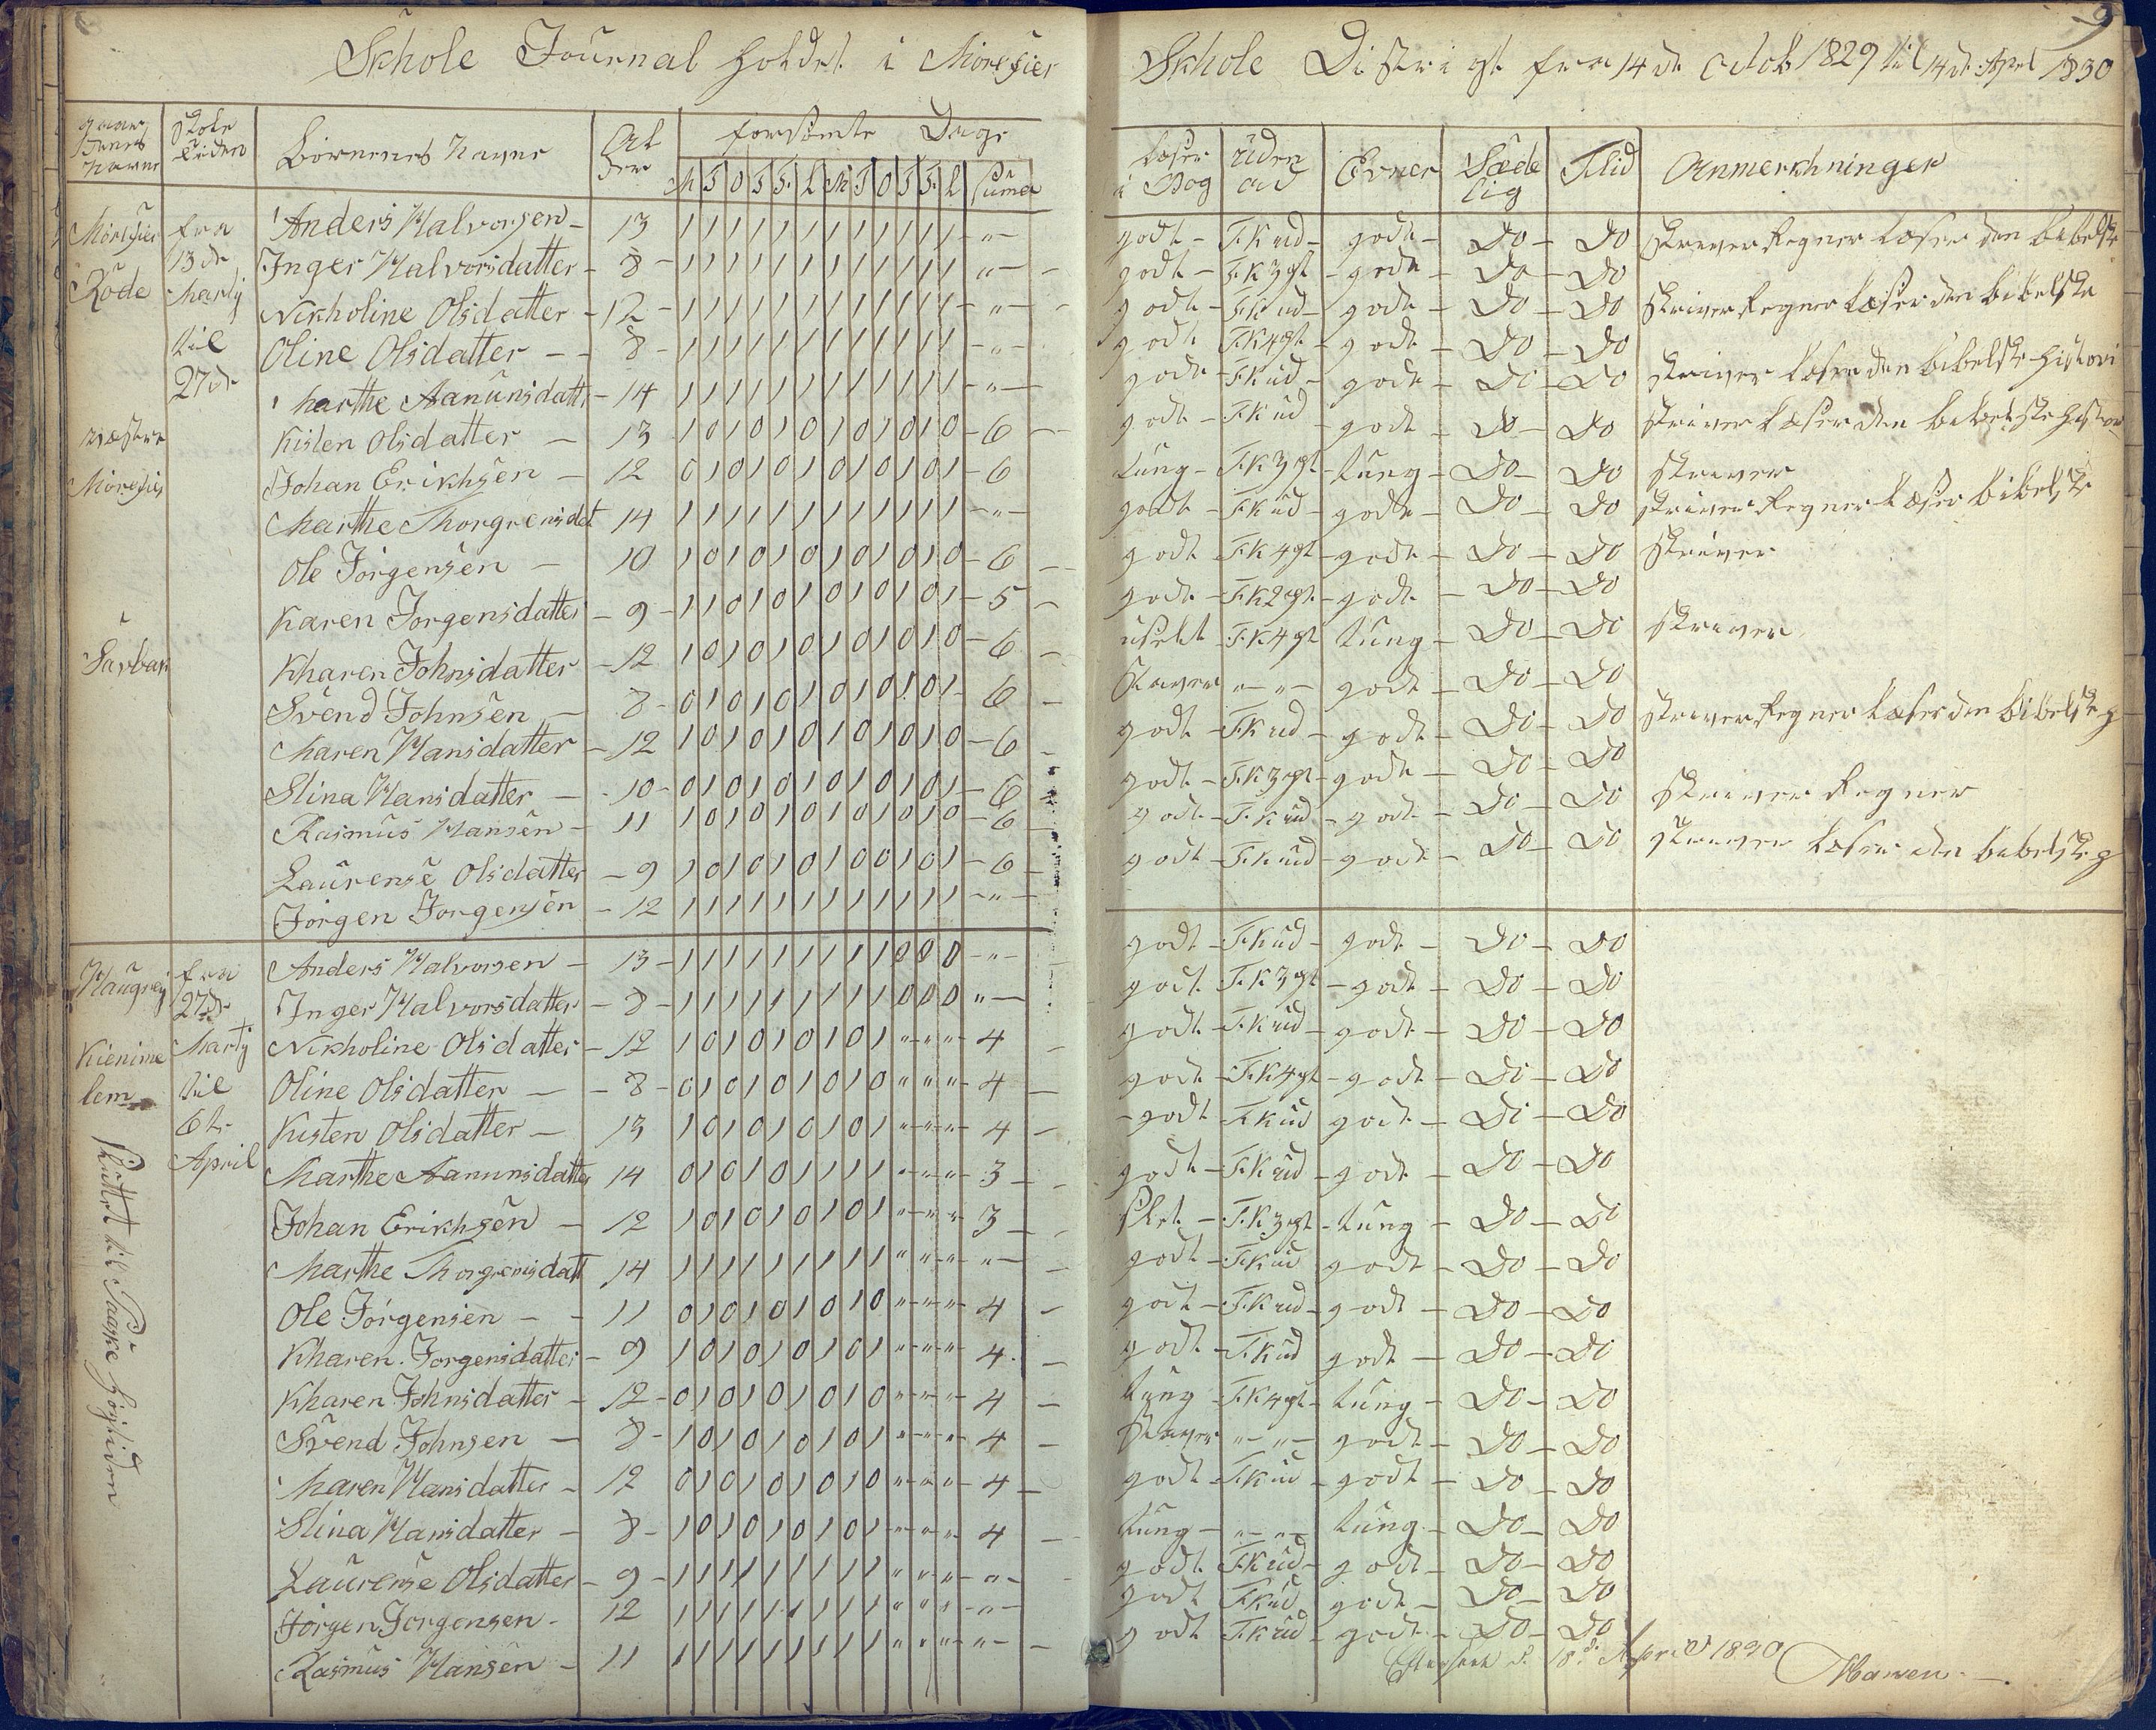 Skhole Journal holdet i Morefier Skhole Districkt fra 14de Octob 1829 til 14de Apel 1830
9
gaardenes navne | Skole tiden | Børnenes navne | Alder | forsømte Dage | læser i Bog | uden ad | Evner | Sædelig | Flid | Anmerkhninger
M T O T F L M T O T F L Suma
Morefier fra Anders Halvorsen - 13 1 1 1 1 1 1 1 1 1 1 1 1 - " - godt - F.K ud - godt - Do - Do skriver Regner Læser den bibelske
13de Inger Halvorsdatter - 8 - 1 1 1 1 1 1 1 1 1 1 1 1 " - godt - F.K 3 gt - godt - Do - Do
Rode Martij Nikholine Olsdatter - 12 - 1 1 1 1 1 1 1 1 1 1 1 1 - " - godt - F.K ud - godt - Do - Do skriver Regner Læser den bibelske
til Oline Olsdatter - - 8 - 1 1 1 1 1 1 1 1 1 1 1 1 - " - godt F.K 4 gt - godt - Do - Do
27de Marthe Aanunsdatt - 14 1 1 1 1 1 1 1 1 1 1 1 1 - " - godt - F.K ud - godt - Do - Do skriver Læser den bibelske Histori
næstre Kisten Olsdatter - 13 1 0 1 0 1 0 1 0 1 0 1 0 - 6 - godt - F.K ud godt - Do - Do skriver Læser den bibelske Histor
Morefier Johan Erikhsen - 12 0 1 0 1 0 1 0 1 0 1 0 1 - 6 tung - F.K 3 gt - tung - Do - Do skriver
Marthe Thorgrensdat 14 1 1 1 1 1 1 1 1 1 1 1 1 - " - godt - F.K ud - godt - Do - Do skriver Regner Læser bibelske
Ole Jörgensen - 10 1 0 1 0 1 0 1 0 1 0 1 0 - 6 - godt F.K 4 gt - godt - Do - Do skriver
Karen Jorgensdatter - 9 - 1 1 0 1 0 1 0 1 0 1 0 1 - 5 - godt - F.K 2 gt - godt - Do - Do
Sarbak Kharen Johnsdatter - 12 1 0 1 0 1 0 1 0 1 0 1 0 - 6 - uselt F.K 4 gt tung - Do - Do skriver
Svend Johnsen - 8 - 0 1 0 1 0 1 0 1 0 1 0 1 - 6 - Staver " - " - godt - Do - Do
Maren Hansdatter - 12 1 0 1 0 1 0 1 0 1 0 1 0 - 6 - godt - F.K ud - godt - Do - Do skriver Regner Læser den bibelske h
Stina Hansdatter - 10 - 0 1 0 1 0 1 0 1 0 1 0 1 - 6 godt - F.K 3 gt - godt - Do - Do
Rasmus Hansen - 11 1 0 1 0 1 0 1 0 1 0 1 0 - 6 - godt - F.K ud - godt - Do - Do skriver Regner
Laurense Olsdatter - 9 1 0 1 0 1 0 1 0 0 1 0 1 - 6 - godt - F.K ud - godt - Do - Do skriver Læser den bibelske h
Jorgen Jorgensen - 12 1 1 1 1 1 1 1 1 1 1 1 1 - " -
Haugrej fra Anders Halvorsen - 13 - 1 1 1 1 1 1 1 1 1 0 0 0 - " - godt - F.K ud - godt - Do - Do
27de Inger Halvorsdatter - 8 - 1 1 1 1 1 1 1 1 1 0 0 0 " - godt F.K 3 gt - godt - Do - Do
Kienime Martij Nikholine Olsdatter - 12 1 0 1 0 1 0 1 0 1 " " " 4 - godt - F.K ud - godt - Do - Do
lem til Oline Olsdatter - - 8 - 0 1 0 1 0 1 0 1 0 " " " 4 - godt - F.K 4 gt - godt - Do - Do
6te Kisten Olsdatter - 13 1 0 1 0 1 0 1 0 1 " " " 4 - godt F.K ud godt - Do - Do
April Marthe Aanunsdatter 14 0 1 0 1 0 1 1 1 1 " " " - 3 - godt - F.K ud - godt - Do - Do
Johan Erikhsen - 12 1 0 1 0 1 0 1 0 1 " " " 3 - slet - F.K 3 gt - tung - Do - Do
Marthe Thorgrensdatt 14 1 1 1 1 1 1 1 1 1 " " " - " - godt - F.K ud godt - Do - Do
Ole Jörgensen - - 11 0 1 0 1 0 1 0 1 0 " " " - 4 - godt - F.K ud - godt - Do - Do
Kharen Jorgensdatter - 9 1 0 1 0 1 0 1 0 1 " " " 4 - godt - F.K ud godt - Do - Do
Kharen Johnsdatter - 12 - 0 1 0 1 0 1 0 1 0 " " " - 4 - tung F.K 4 gt - tung - Do - Do
Svend Johnsen - 8 - 1 0 1 0 1 0 1 0 1 " " " - 4 - Staver " - " - godt - Do - Do
Maren Hansdatter - 12 0 1 0 1 0 1 0 1 0 " " " - 4 - godt F.K ud - godt - Do - Do
Stina Hansdatter - 8 - 1 0 1 0 1 0 1 0 1 " " " 4 - tung - " - " - tung - Do - Do
Laurense Olsdatter - 9 - 1 1 1 1 1 1 1 1 1 " " " - " - godt F.K ud - godt - Do - Do
Jörgen Jorgensen - 12 1 1 1 1 1 1 1 1 1 " " " - " - godt F.K ud godt - Do - Do
Rasmus Hansen - 11 1 1 1 1 1 1 1 1 1 " " " - " - godt F.K ud - godt - Do - Do
sluttet til Paaske Høytiden
Efterseet d. 18de April 1830 Hansen